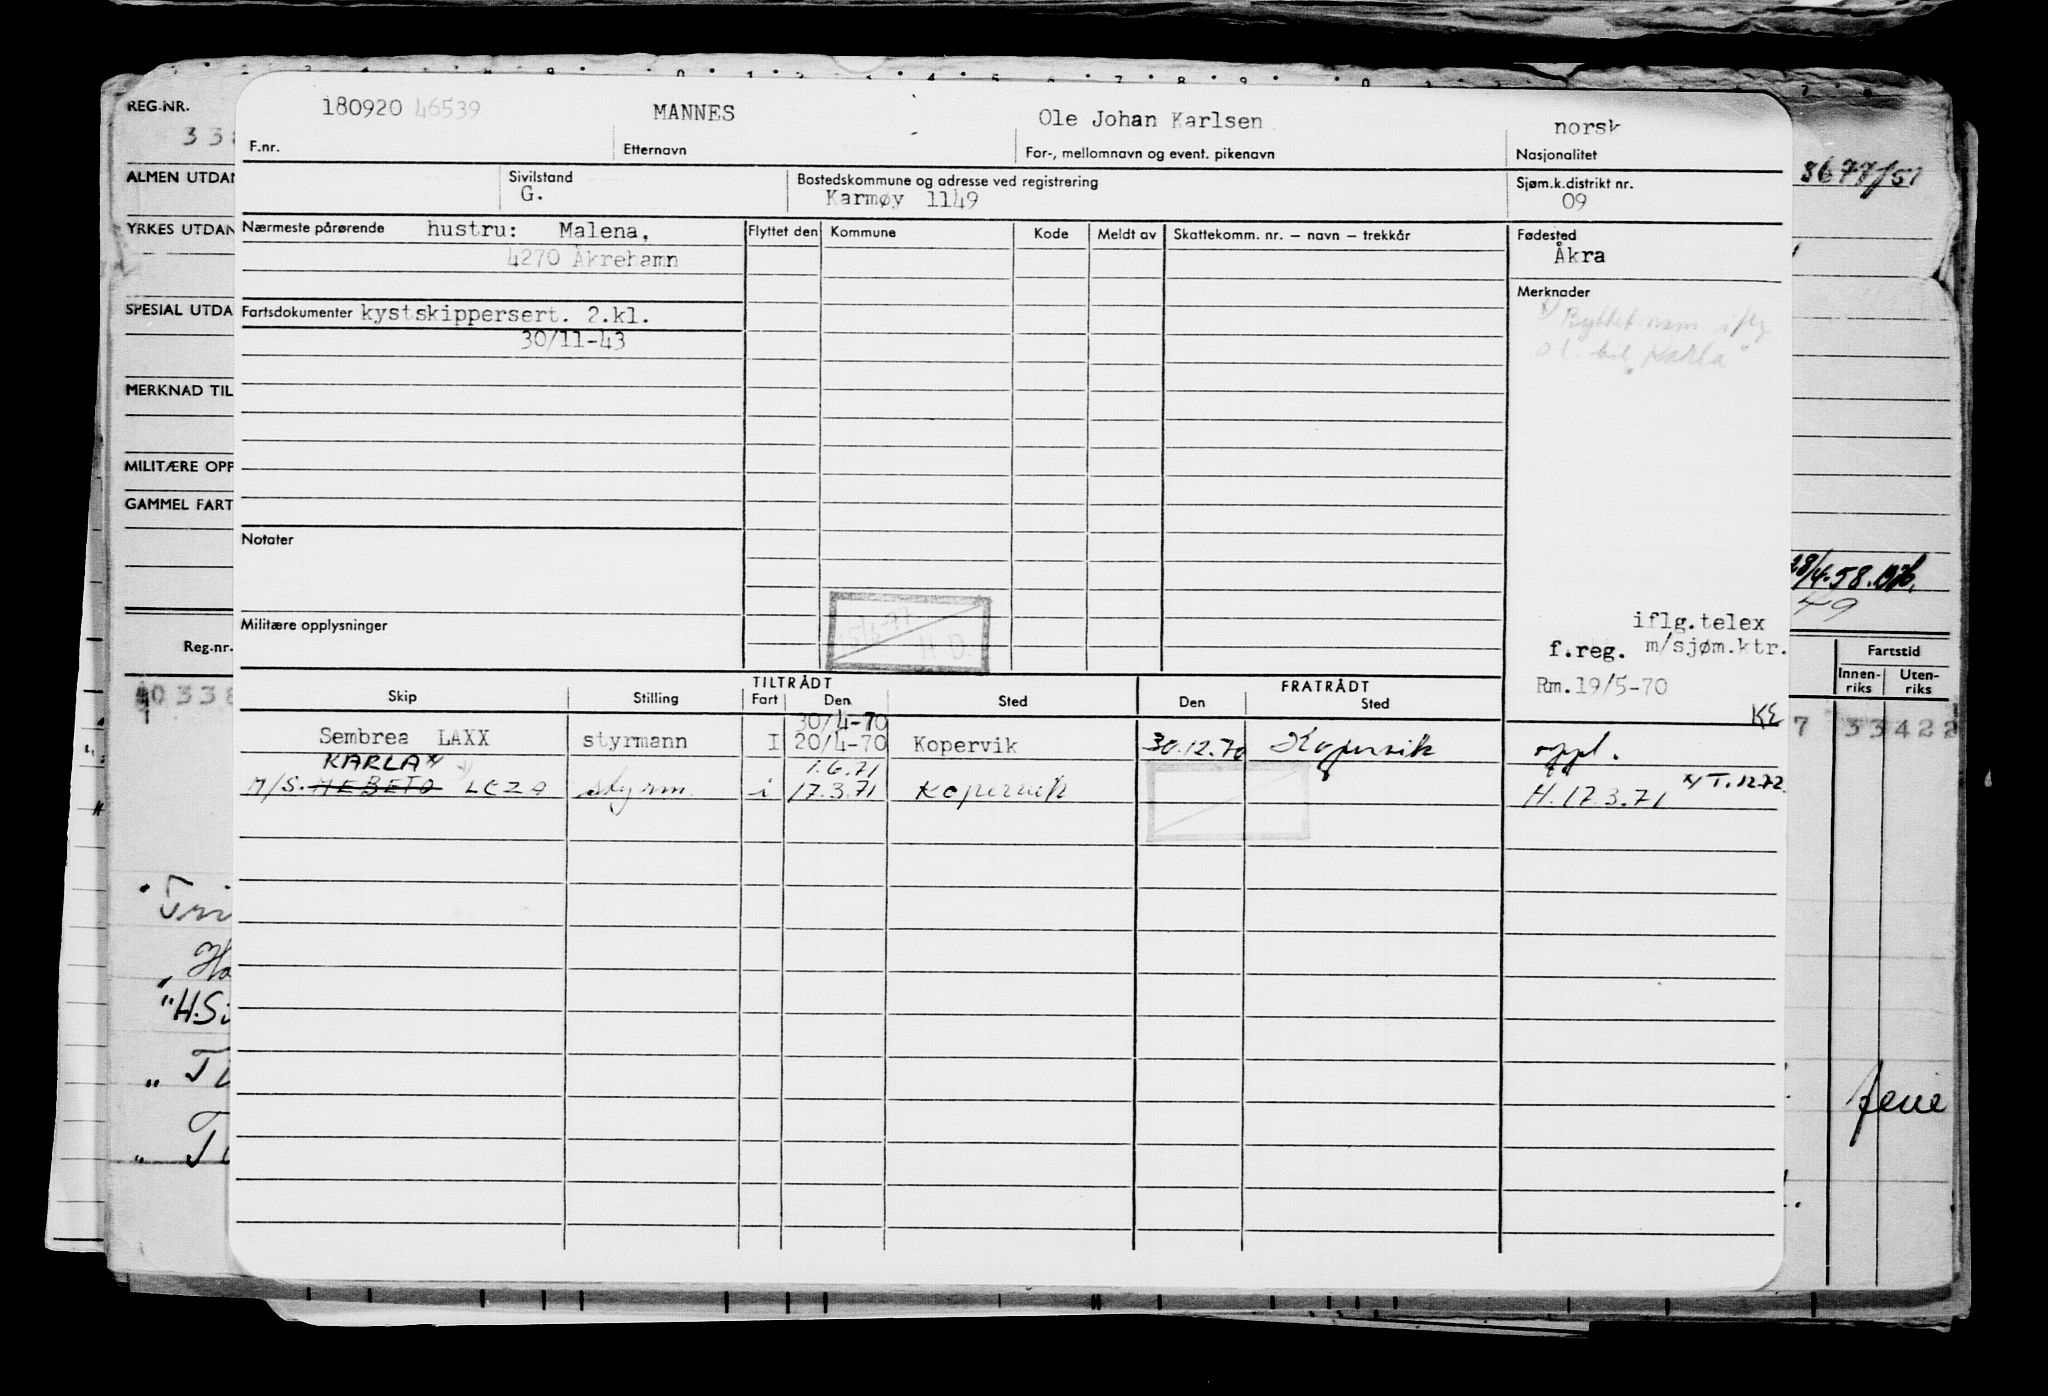 REG.NR.
180920 46539 MANNES Ole Johan Karlsen norsk
F.nr. Etternavn For-, mellomnavn og event. pikenavn Nasjonalitet
ALMEN UTDAN Sivilstand Bostedskommune og adresse ved registrering Sjøm.k.distrikt nr. 3677/51
G. Karmøy 1149 09
YRKES UTDAN Nærmeste pårørende hustru: Malena, Flyttet den Kommune Kode Meldt av Skattekomm. nr. – navn – trekkår Fødested
4270 Åkrehamn Åkra
Merknader
SPESIAL UTDA Fartsdokumenter kystskippersert. 2.kl.
30/11-43
x) Byttet navn iflg
o l. til "Karla"
MERKNAD TIL
MILITÆRE OPP
GAMMEL FART
Notater
28/4-58.
49
15/3-77
H.D.
Militære opplysninger
iflg.telex
f.reg. m/sjøm.ktr.
Rm.19/5-70
KE
Reg.nr. Fartstid
Innenriks Utenriks
40338 7 33422
TILTRÅDT FRATRÅDT
Skip Stilling Fart Den Sted Den Sted
30/4-70
Sembrea LAXX styrmann I 20/4-70 Kopervik 30.12.70 Kopervik oppl.
KARLA x) 1.6.71
M/S. MEBETO LEZA styrm. i 17.3.71 Kopervik H.17.3.71 x) T.12.72.
Tri
Ha
"H.Si
" T
" T
fene